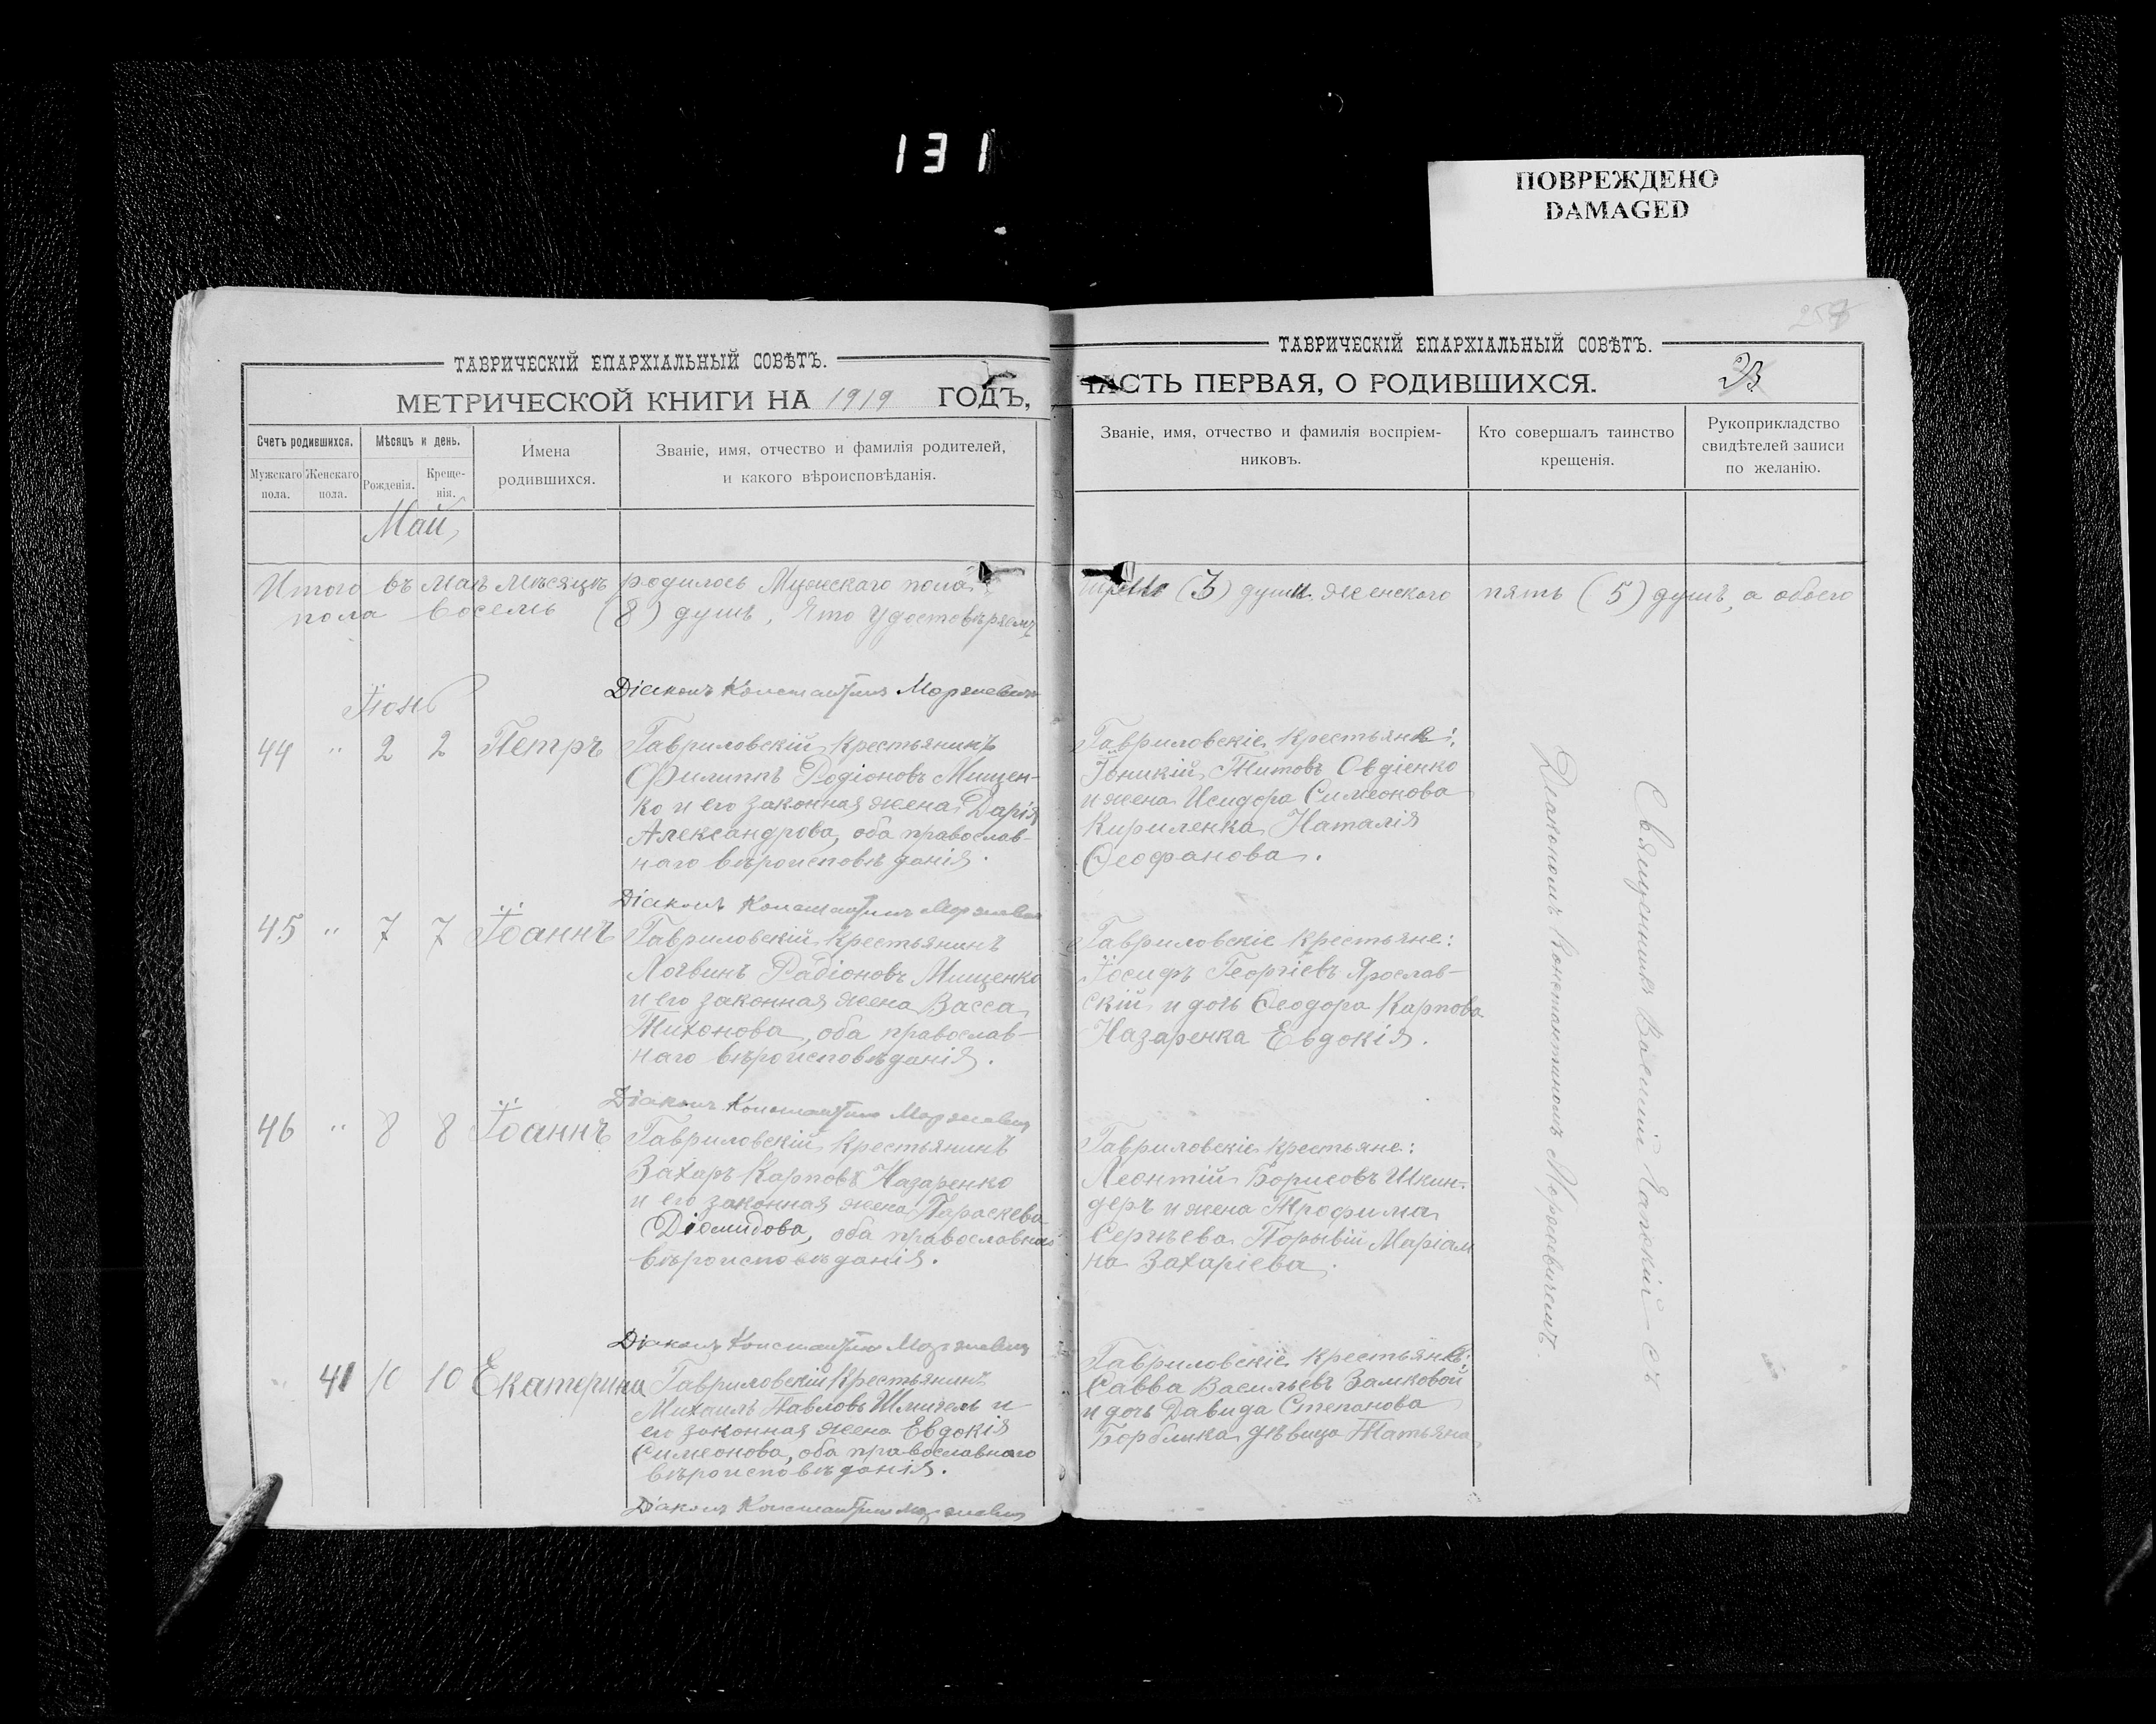 131
ПОВРЕЖДЕНО
DAMAGED
ТАВРИЧЕСКІЙ ЕПАРХІАЛЬНЫЙ СОВѢТЪ.
МЕТРИЧЕСКОЙ КНИГИ НА 1919 ГОДЪ,
Счетъ родившихся.
Мужскаго пола.
Женскаго пола.
Мѣсяцъ и день.
Рожденія.
Креще-
нія.
Имена
родившихся.
Званіе, имя, отчество и фамилія родителей,
и какого вѣроисповѣданія.
Май
Итого въ маѣ мѣсяцѣ родилось Мужескаго пола
пола восемь (8) душъ, Что удостовѣряемъ
Діаконъ Константинъ Моржевичъ
Іюнь
44 " 2 2 Петръ
Гавриловскій крестьянинъ
Филиппъ Родіоновъ Мищен-
ко и его законная жена Дарія
Александрова, оба православ-
наго вѣроисповѣданія.
Діаконъ Константинъ Моржевичъ
45 " 7 7 Іоаннъ
Гавриловскій крестьянинъ
Логвинъ Радіоновъ Мищенко
и его законная жена Васса
Тихонова, оба православ-
наго вѣроисповѣданія.
Діаконъ Константинъ Моржевичъ
46 " 8 8 Іоаннъ
Гавриловскій крестьянинъ
Захаръ Карповъ Назаренко
и его законная жена Параскева
Діомидова, оба православнаго
вѣроисповѣданія.
Діаконъ Константинъ Моржевичъ
" 41 10 10 Екатерина
Гавриловскій крестьянинъ
Михаилъ Павловъ Шмигель и
его законная жена Евдокія
Симеонова, оба православнаго
вѣроисповѣданія.
Діаконъ Константинъ Моржевичъ
ТАВРИЧЕСКІЙ ЕПАРХІАЛЬНЫЙ СОВѢТЪ.
ЧАСТЬ ПЕРВАЯ, О РОДИВШИХСЯ.
Званіе, имя, отчество и фамилія воспріем-
никовъ.
Кто совершалъ таинство
крещенія.
Рукоприкладство
свидѣтелей записи
по желанію.
(3) души, женскаго пять (5) душъ, а обоего
Гавриловскіе крестьяне:
Титовъ Овдіенко
и жена Исидора Симеонова
Кириленка Наталія
Ѳеофанова.
Гавриловскіе крестьяне:
Іосифъ Георгіевъ Ярослав-
скій и дочь Ѳеодора Карпова
Назаренка Евдокія.
Гавриловскіе крестьяне:
Леонтій Борисовъ Шкин-
деръ и жена Трофима
Сергѣева Маріам
на Захаріева.
Гавриловскіе крестьяне:
Савва Васильевъ Замковой
и дочь Давида Степанова
дѣвица Татьяна
Діакономъ Константиномъ Моржевичемъ.
Священникъ Василій съ